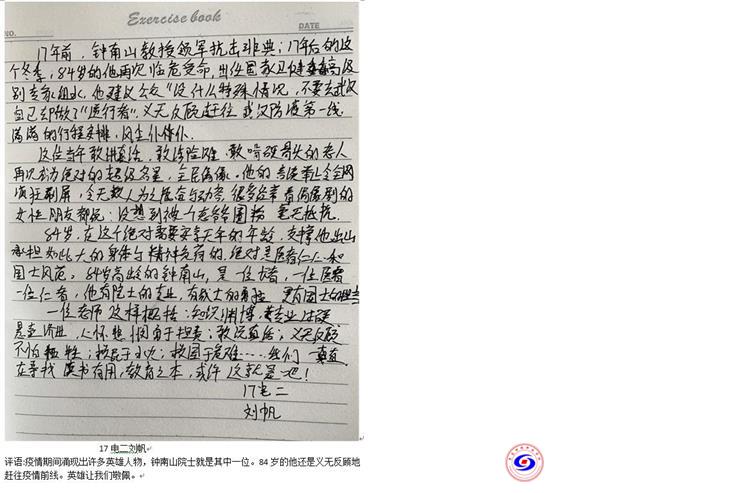 Exercise book
NO.
DATE
17年前，钟南山教授领军抗击非典；17年后的这
个冬季，84岁的他再次临危受命，出任国家卫健委高级
别专家组长，他建议公众“没什么特殊情况，不要去武汉
自己却做了“逆行者”，义无反顾赶往武汉防疫第一线
满满的行程安排，风尘仆仆.
这位当年敢讲真话，敢涉险难，敢啃硬骨头的老人
再次成为绝对的超级名星，全民偶像。他的
疯狂刷屏，令无数人为之
女性朋友都说：没想到被一个老爷爷圈粉，毫无抵抗.
84岁，在这个绝对需要安享天年的年龄，支撑他出山
承担如此大的身体与精神负荷的，绝对是医者仁心和
国士风范。84岁高龄的钟南山，是一位长者，一位医者
一位仁者，他有院士的专业，有战士的勇猛，更有国士的担当
一位老师这样概括：知识渊博，专业过硬
悬壶济世，心怀慈悯勇于担责；敢说真话；义无反顾
不怕牺牲；救国于危难……我们一直
在寻找读书有用，教育之本，或许这就是吧！
17电二
刘帆
17电二刘帆
评语:疫情期间涌现出许多英雄人物，钟南山院士就是其中一位。84岁的他还是义无反顾地
赶往疫情前线。英雄让我们敬佩。